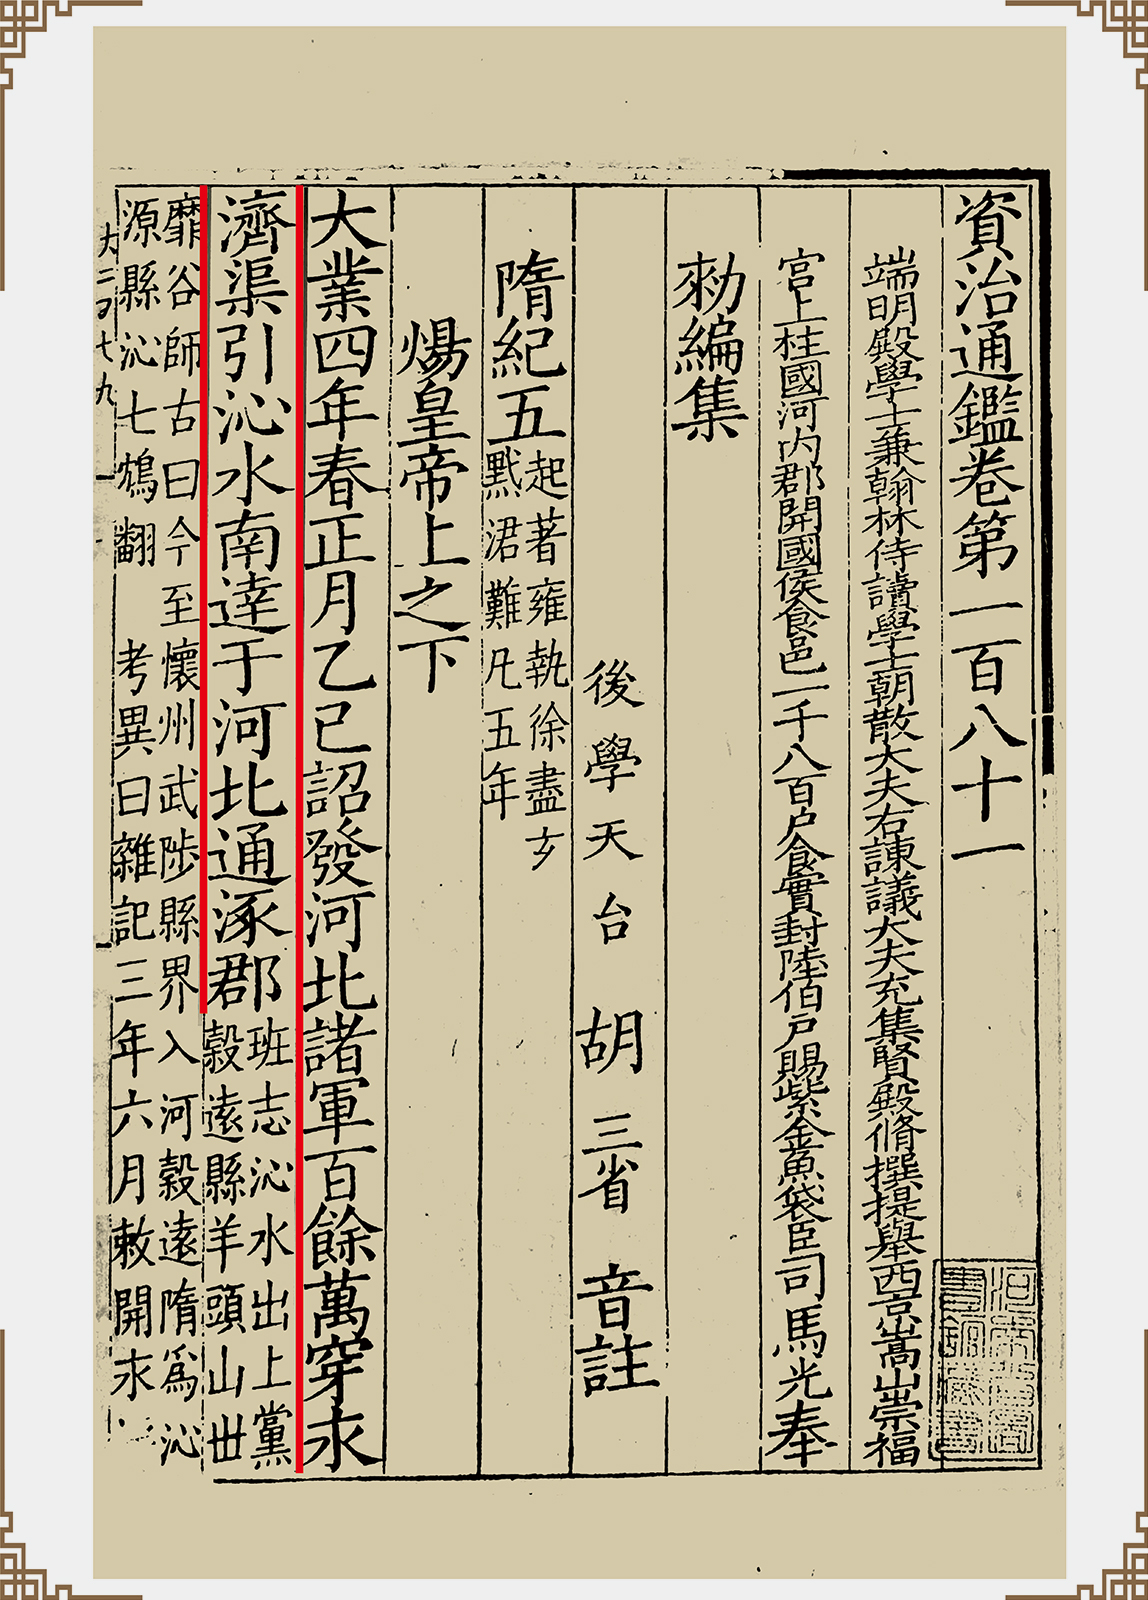 資治通鑑卷第一百八十一
端明殿學士兼翰林侍讀學士朝散大夫右諫議大夫充集賢殿脩撰提舉西京嵩山崇福
宮上柱國河內郡開國侯食邑一千八百户食實封陸伯戸賜紫金魚袋臣司馬光奉
勑編集
後學天台胡三省音註
隋紀五
起著雍執徐盡玄
黓涒難凡五年
煬皇帝上之下
大業四年春正月乙巳詔發河北諸軍百餘萬穿永
濟渠引沁水南達于河北通涿郡
班志沁水出上黨
穀遠縣羊頭山世
靡谷師古曰今至懷州武陟縣界入河穀遠隋爲沁
源縣沁七鴆翻 考異曰雜記三年六月敕開永